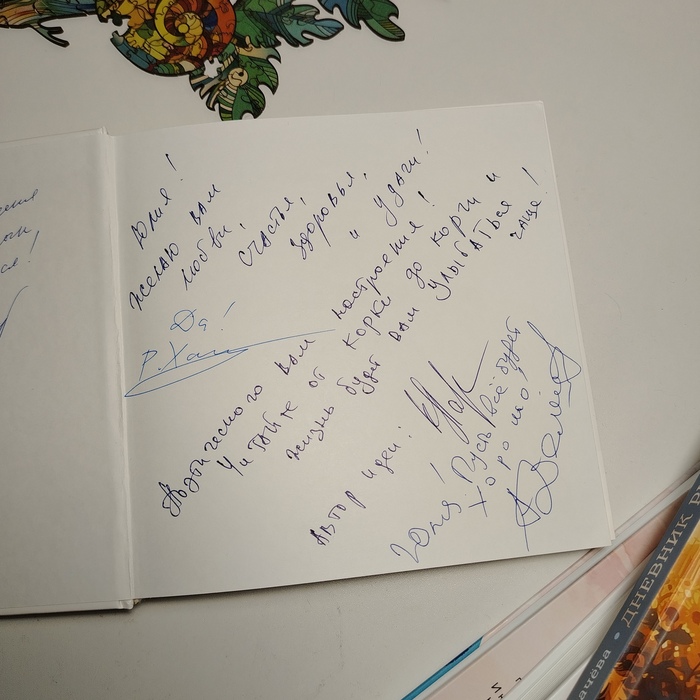 Юлия!
желаю вам
любви,
счастья,
здоровья,
и удачи!
Да!
Р. Хан
Поэтического вам настроения!
Читайте от корки до корки и
жизнь будет вам улыбаться
чаще!
Автор идеи:
Юлия! Пусть всё будет
хорошо!
ся!
ачёва • ДНЕВНИК